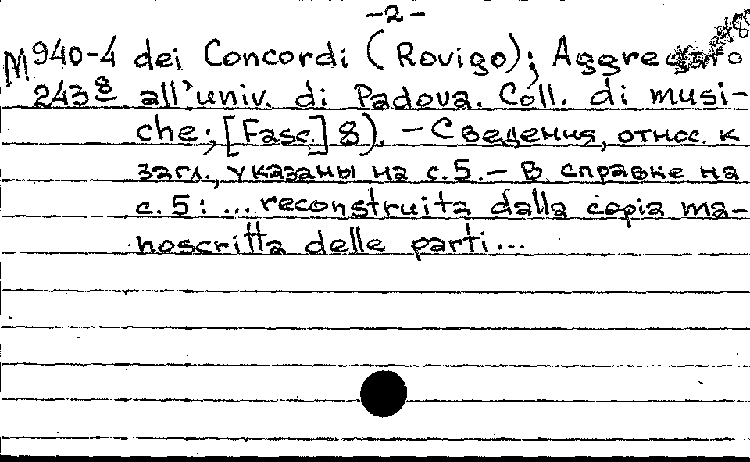 -2-
М940-4 dei Concordi (Rovigo); Aggregato
243 8 all'univ. di Padova. Coll. di musi-
che; [Fasc.] 8). - Сведения, относ. к
загл., указаны на с.5. - В справке на
с.5: ... reconstruita dalla copia ma-
noscritta delle parti...